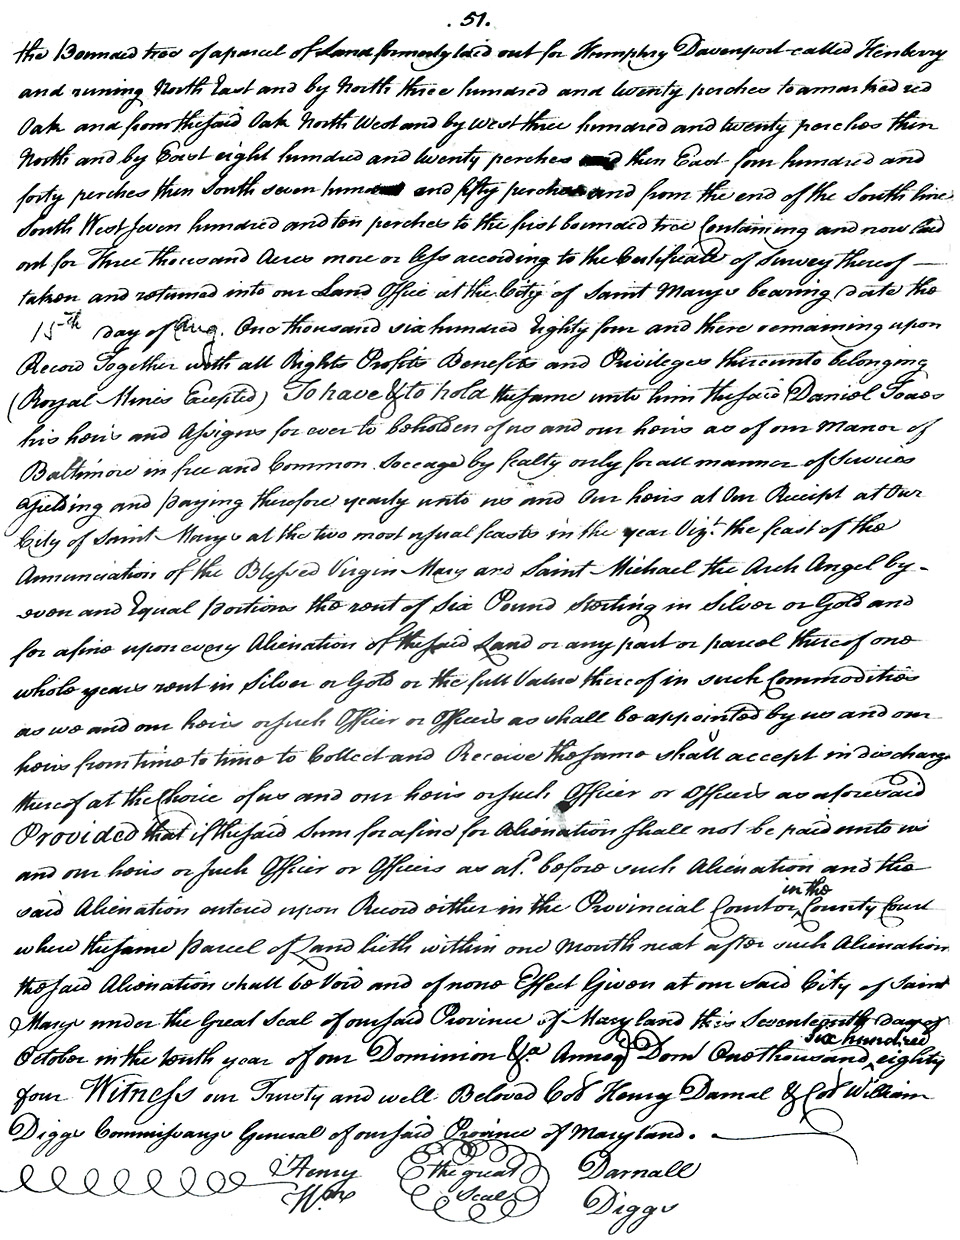 . 51.
the Bounded tree of a parcel of Land formerly laid out for Humphry Davenport called Henberry
and runing North East and by North three hundred and twenty perches to a marked red
Oak and from the said Oak North West and by West three hundred and twenty perches then
North and by East eight hundred and twenty perches then East four hundred and
forty perches then South seven hundred and fifty perches and from the end of the South line
South West Seven hundred and ten perches to the first bounded tree Containing and now laid
out for Three thousand Acres more or less according to the Certificate of Survey thereof —
taken and returned into our Land Office at the City of Saint Marys bearing date the
15th day of Aug. One thousand six hundred Eighty four and there remaining upon
Record Together with all Rights Profits Benefits and Privileges thereunto belonging
(Royal Mines Excepted) To have & to hold the same unto him the said Daniel Toaes
his heirs and Assigns for ever to be holden of us and our heirs as of our Manor of
Baltimore in free and Common Soccage by fealty only for all manner of Services
Yielding and paying therefore yearly unto us and Our heirs at Our Receipt at Our
City of Saint Marys at the two most usual feasts in the year Vizt. the feast of the
Annunciation of the Blessed Virgin Mary and Saint Michael the Arch Angel by -
even and Equal portions the rent of Six Pound sterling in Silver or Gold and
for a fine upon every Alienation of the said Land or any part or parcel thereof one
whole years rent in Silver or Gold or the full Value thereof in such Commodities
as we and our heirs or such Officer or Officers as shall be appointed by us and our
heirs from time to time to Collect and Receive the same shall accept in discharge
thereof at the Choice of us and our heirs or such Officer or Officers as aforesaid
Provided that if the said Sum for a fine for Alienation shall not be paid unto us
and our heirs or such Officer or Officers as afd. before such Alienation and the
said Alienation entered upon Record either in the Provincial Court or in the County Court
where the same parcel of Land lieth within one Month next after such Alienation
the said Alienation shall be Void and of none Effect Given at our said City of Saint
Marys under the Great Seal of our said Province of Maryland this Seventeenth day of
October in the tenth year of our Dominion &a Annoq Dom One thousand six hundred eighty
four Witness our Trusty and well Beloved Col Henry Darnal & Col William
Diggs Commissarys General of our said Province of Maryland.
Henry the great Darnall
Wm Seal Diggs